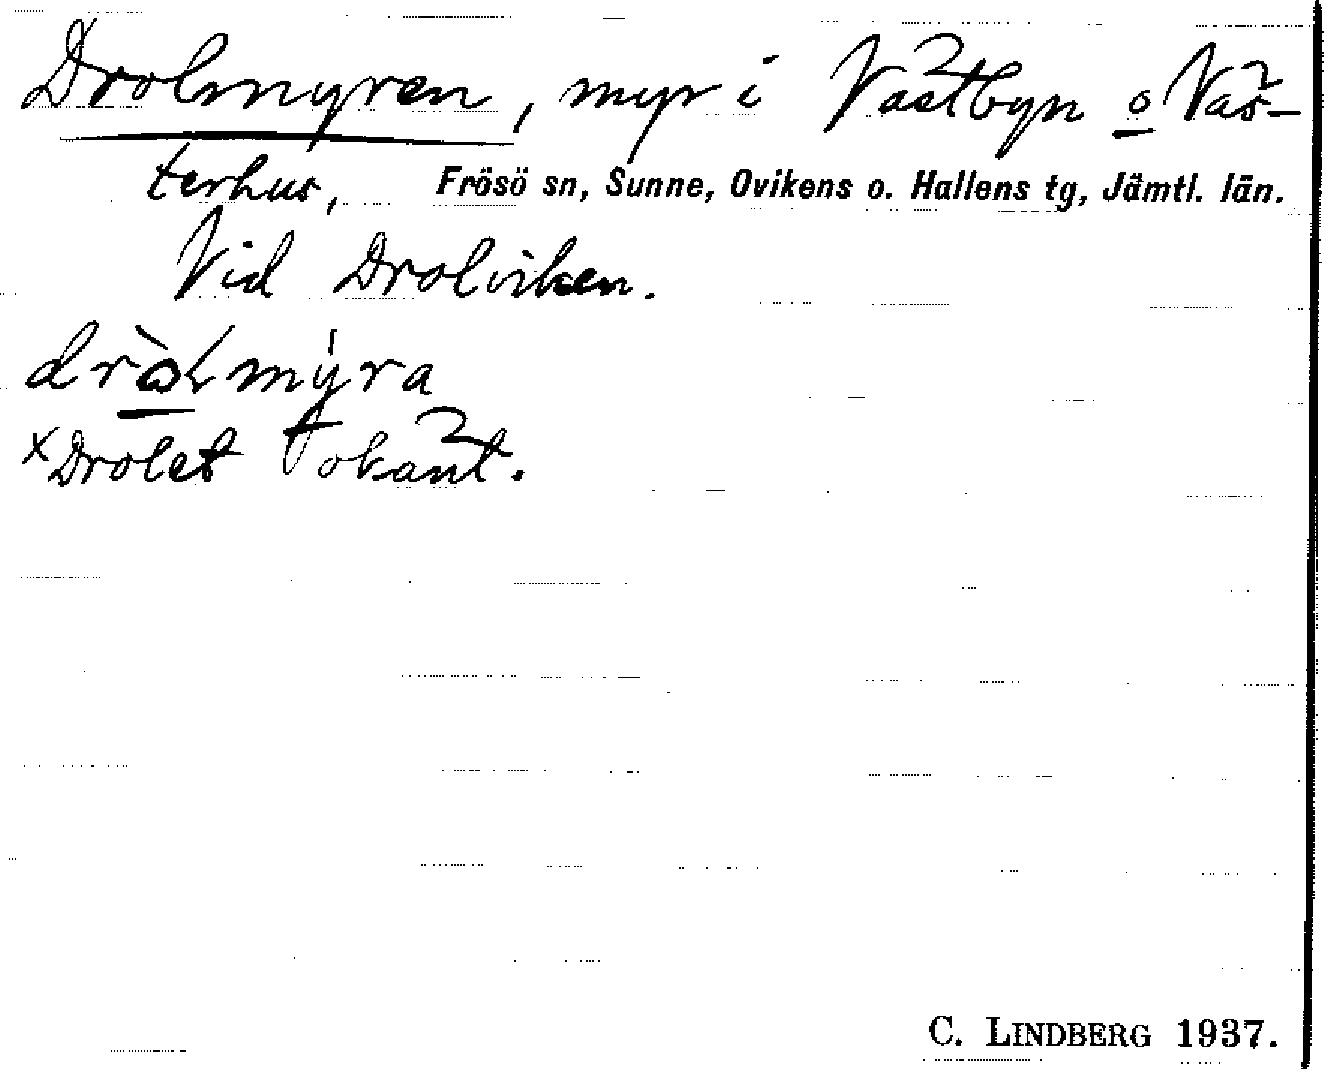 Drolmyren, myr i Västbyn o Väs-
terhus, Frösö sn, Sunne, Ovikens o. Hallens tg, Jämtl. län.
Vid Drolviken.
myra
×Drolet okänt.
C. LINDBERG 1937.